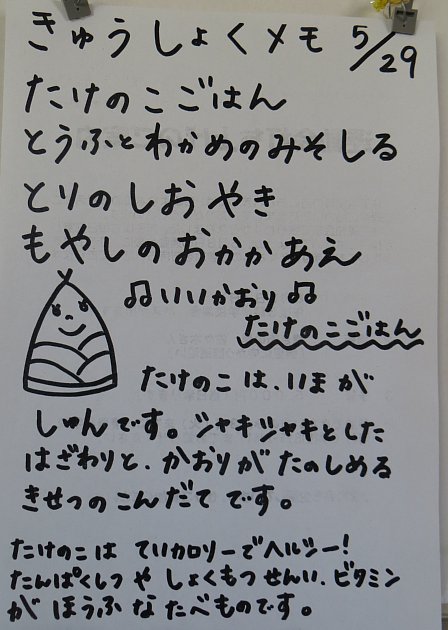 きゅうしょくメモ 5/29
たけのこごはん
とうふとわかめのみそしる
とりのしおやき
もやしのおかかあえ
♫いいかおり♫
たけのこごはん
たけのこは、いまが
しゅんです。シャキシャキとした
はざわりと、かおりがたのしめる
きせつのこんだてです。
たけのこは ていカロリーでヘルシー!
たんぱくしつ や しょくもつせんい、ビタミン
が ほうふ な たべものです。